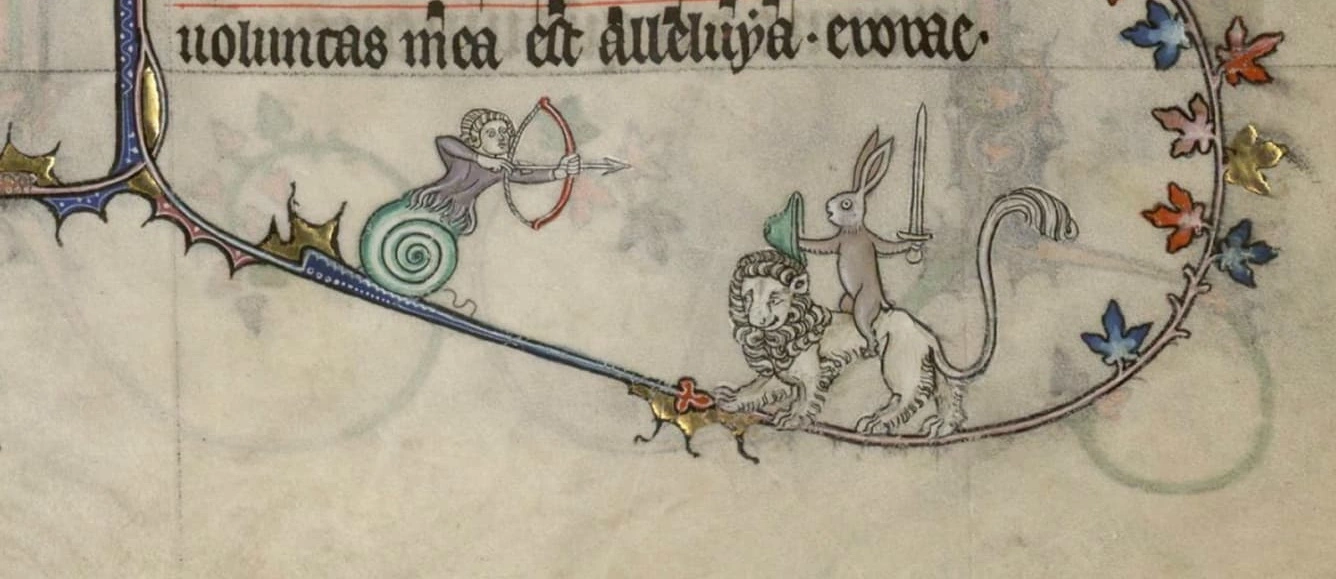 uoluntas mea est alleluya · evovae ·